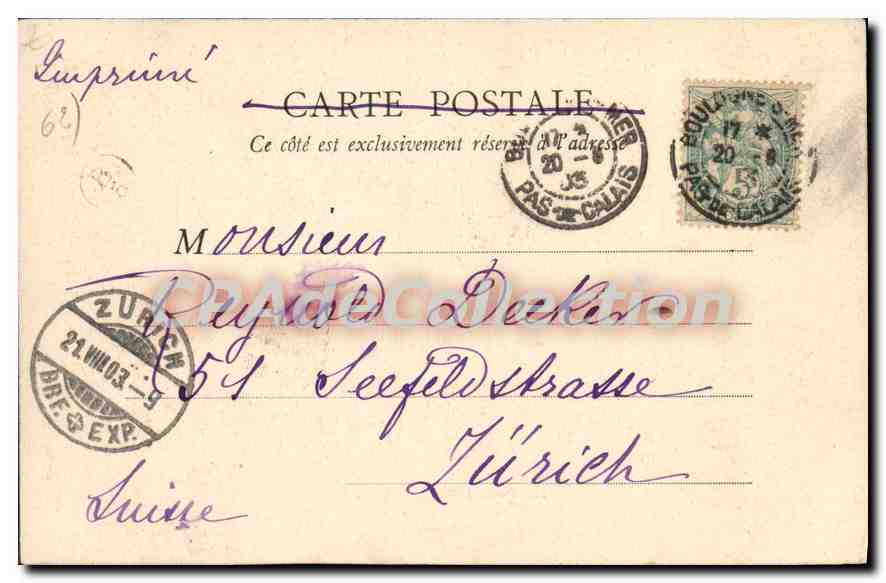 Imprimé
62)
CARTE POSTALE
Ce côté est exclusivement réservé à l'adresse
BOULOGNE S-MER
17 *
20 - 8
03
PAS-DE-CALAIS
BOULOGNE S-MER
17 *
20 8
PAS-DE-CALAIS
5
Monsieur
CPAdeCollection
Decker
51 Seefeldstrasse
Zürich
Suisse
ZÜRICH
21.VIII.03.-9
BRF. EXP.